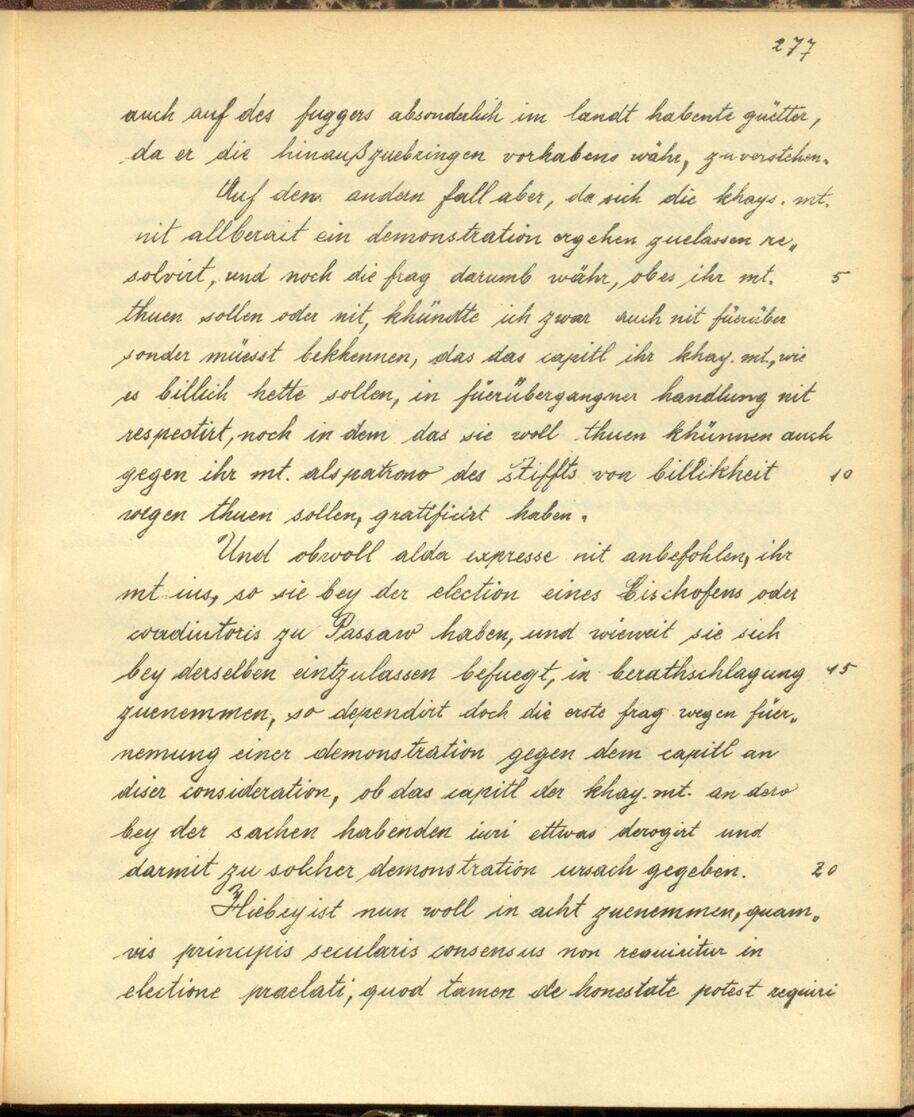 277
auch auf des fuggers absonderlich im landt habente güetter,
da er die hinaußzuebringen vorhabens währ, zuverstehen.
Auf den andern fall aber, da sich die khays. mt.
nit allberait ein demonstration ergehen zuelassen re„
solvirt, und noch die frag darumb währ, ob es ihr mt. 5
thuen sollen oder nit, khündte ich zwar auch nit füerüber
sonder müesst bekhennen, das das capitl ihr khay. mt., wie
es billich hette sollen, in füerübergangner handlung nit
respectirt, noch in dem das sie woll thuen khünnen auch
gegen ihr mt. als patrono des stiffts von billikheit 10
wegen thuen sollen, gratificirt haben.
Und obwoll alda expresse nit anbefohlen, ihr
mt. ius, so sie bey der election eines Bischofens oder
coadiutoris zu Passaw haben, und wieweit sie sich
bey derselben eintzulassen befuegt, in berathschlagung 15
zuenemmen, so dependirt doch die erste frag wegen füer„
nemung einer demonstration gegen dem capitl an
diser consideration, ob das capitl der khay. mt. an dero
bey der sachen habenden iuri ettwas derogirt und
darmit zu solcher demonstration ursach gegeben. 20
Hiebey ist nun woll in acht zuenemmen, quam„
vis principis secularis consensus non requiritur in
electione praelati, quod tamen de honestate potest requiri